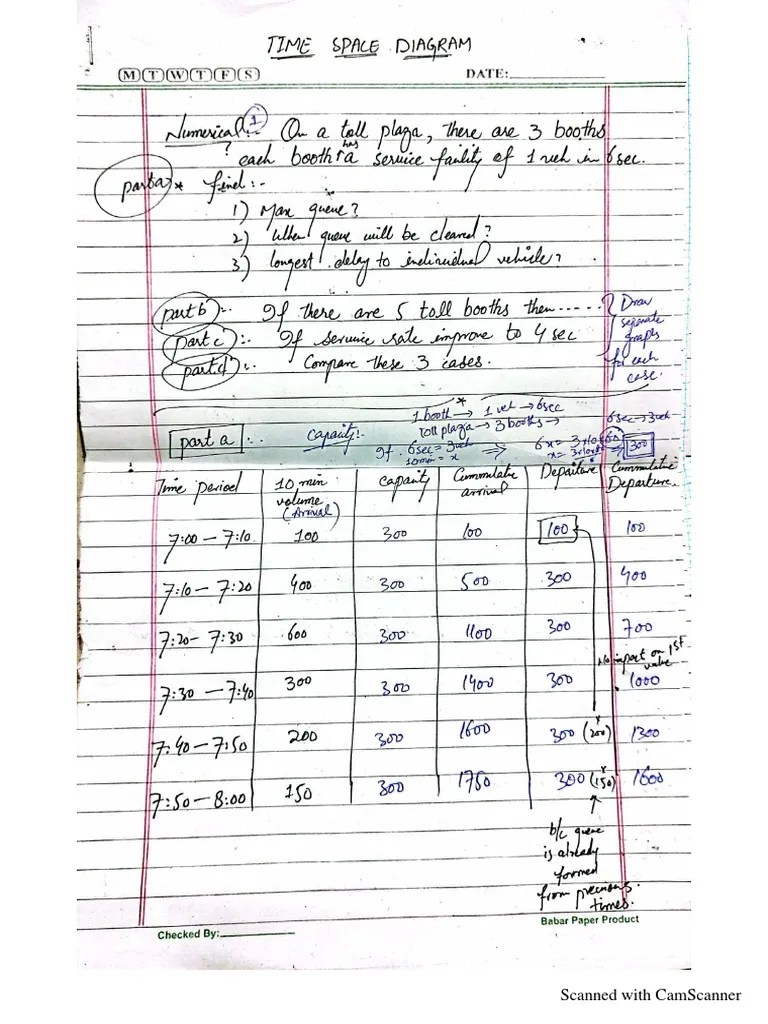 TIME SPACE DIAGRAM
M T W T F S
DATE:
Numerical:- 1 On a toll plaza, there are 3 booths
? each booth has a service facility of 1 veh in 6 sec.
part a * find:-
1) Max queue?
2) When queue will be cleared?
3) longest delay to individual vehicle?
part b:- If there are 5 toll booths then.....
part c:- If service rate improve to 4 sec
part d:- Compare these 3 cases.
Draw
separate
graphs
for each
case.
part a :. Capacity:-
* 1 booth → 1 veh → 6sec
toll plaza → 3 booths →
6sec → 3veh
If 6sec = 3veh
10min = x
⇒ 6x = 3x10x60
x = 3x10x60
300
Time period
10 min volume (Arrival)
Capacity
Cummulative arrival
Departure
Cummulative Departure.
7:00 – 7:10 100 300 100 100 100
7:10 – 7:20 400 300 500 300 400
7:20 – 7:30 600 300 1100 300 700
No impact on 1st
value
7:30 – 7:40 300 300 1400 300 1000
7:40 – 7:50 200 300 1600 300 (200) 1300
7:50 – 8:00 150 300 1750 300 (150) 1600
b/c queue
is already
formed
from previous
times.
Babar Paper Product
Checked By:
Scanned with CamScanner